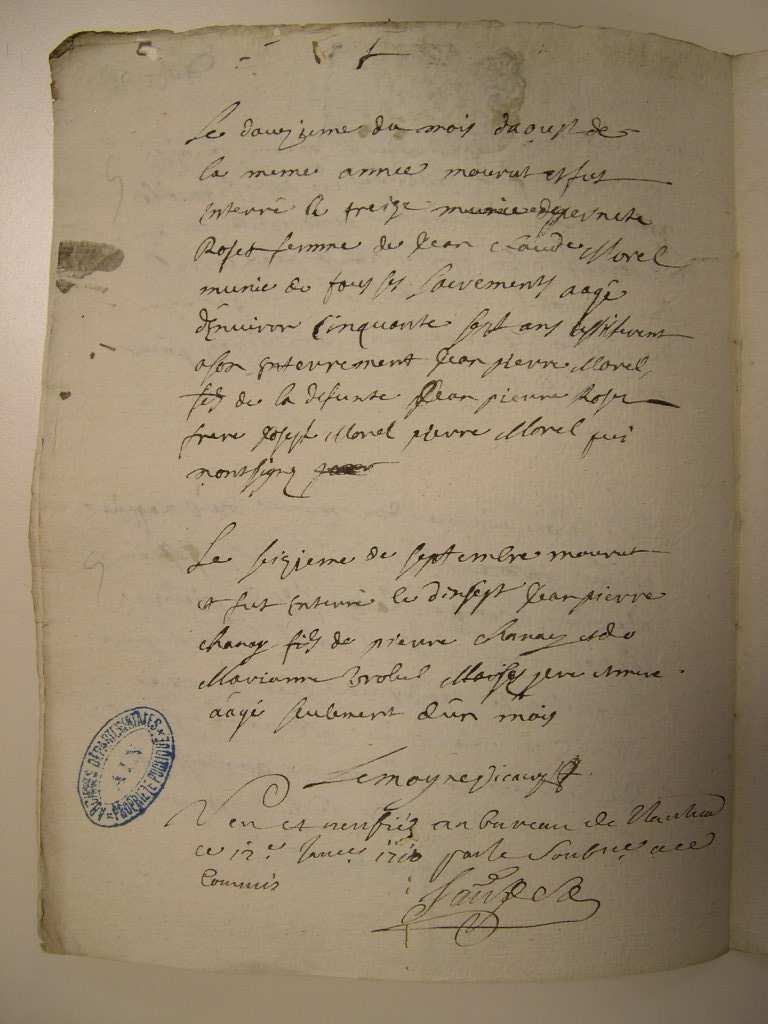 Le douzieme du mois daoust de
la meme année mourut et fut
interré le treize pernete
Roset femme de Jean Claude Morel
munie de tous ses sacrements aagé
d'environ cinquante sept ans assisterent
a son interrement Jean pierre Morel
fils de la defunte Jean pierre Roset
frere Joseph Morel pierre Morel qui
nont signé
Le seizieme de septembre mourut
et fut interré le dixsept Jean pierre
chanay fils de pierre chanay et de
Marianne pere et mere
aagé seulement d'un mois
Lemoyne vicaire
Veu et verifié au bureau de
ce 12e Janer par le Soubne a ce
Commis
ARCHIVES DÉPARTEMENTALES
AIN
PROPRIÉTÉ PUBLIQUE